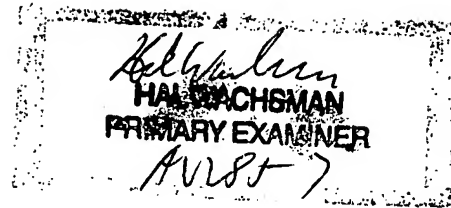 HAL WACHSMAN
PRIMARY EXAMINER
AU 2857